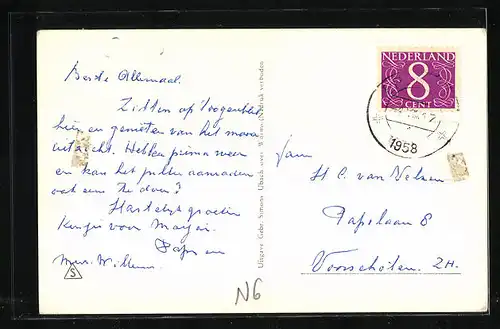 Beste Allemaal.
Zitten op 't oogenblik
hier en genieten van het mooie
uitzicht. Hebben prima weer
en kan het jullie aanraden
ook eens te doen?
Hartelijk groeten
van
Papa en
Mevr. Willems.
S
Uitgave Gebr. Simons Ubach over Worms Nadruk verboden
NEDERLAND
8
CENT
1958
Fam
v. Nelsen
Papelaan 8
Voorschoten. ZH.
N6